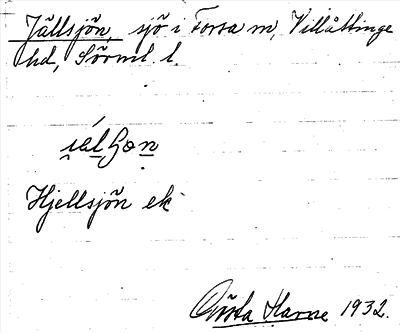 Jällsjön, sjö i Forsa sn, Villåttinge
hd, Sörml. l.
Hjellsjön ek
Gösta Harne 1932.